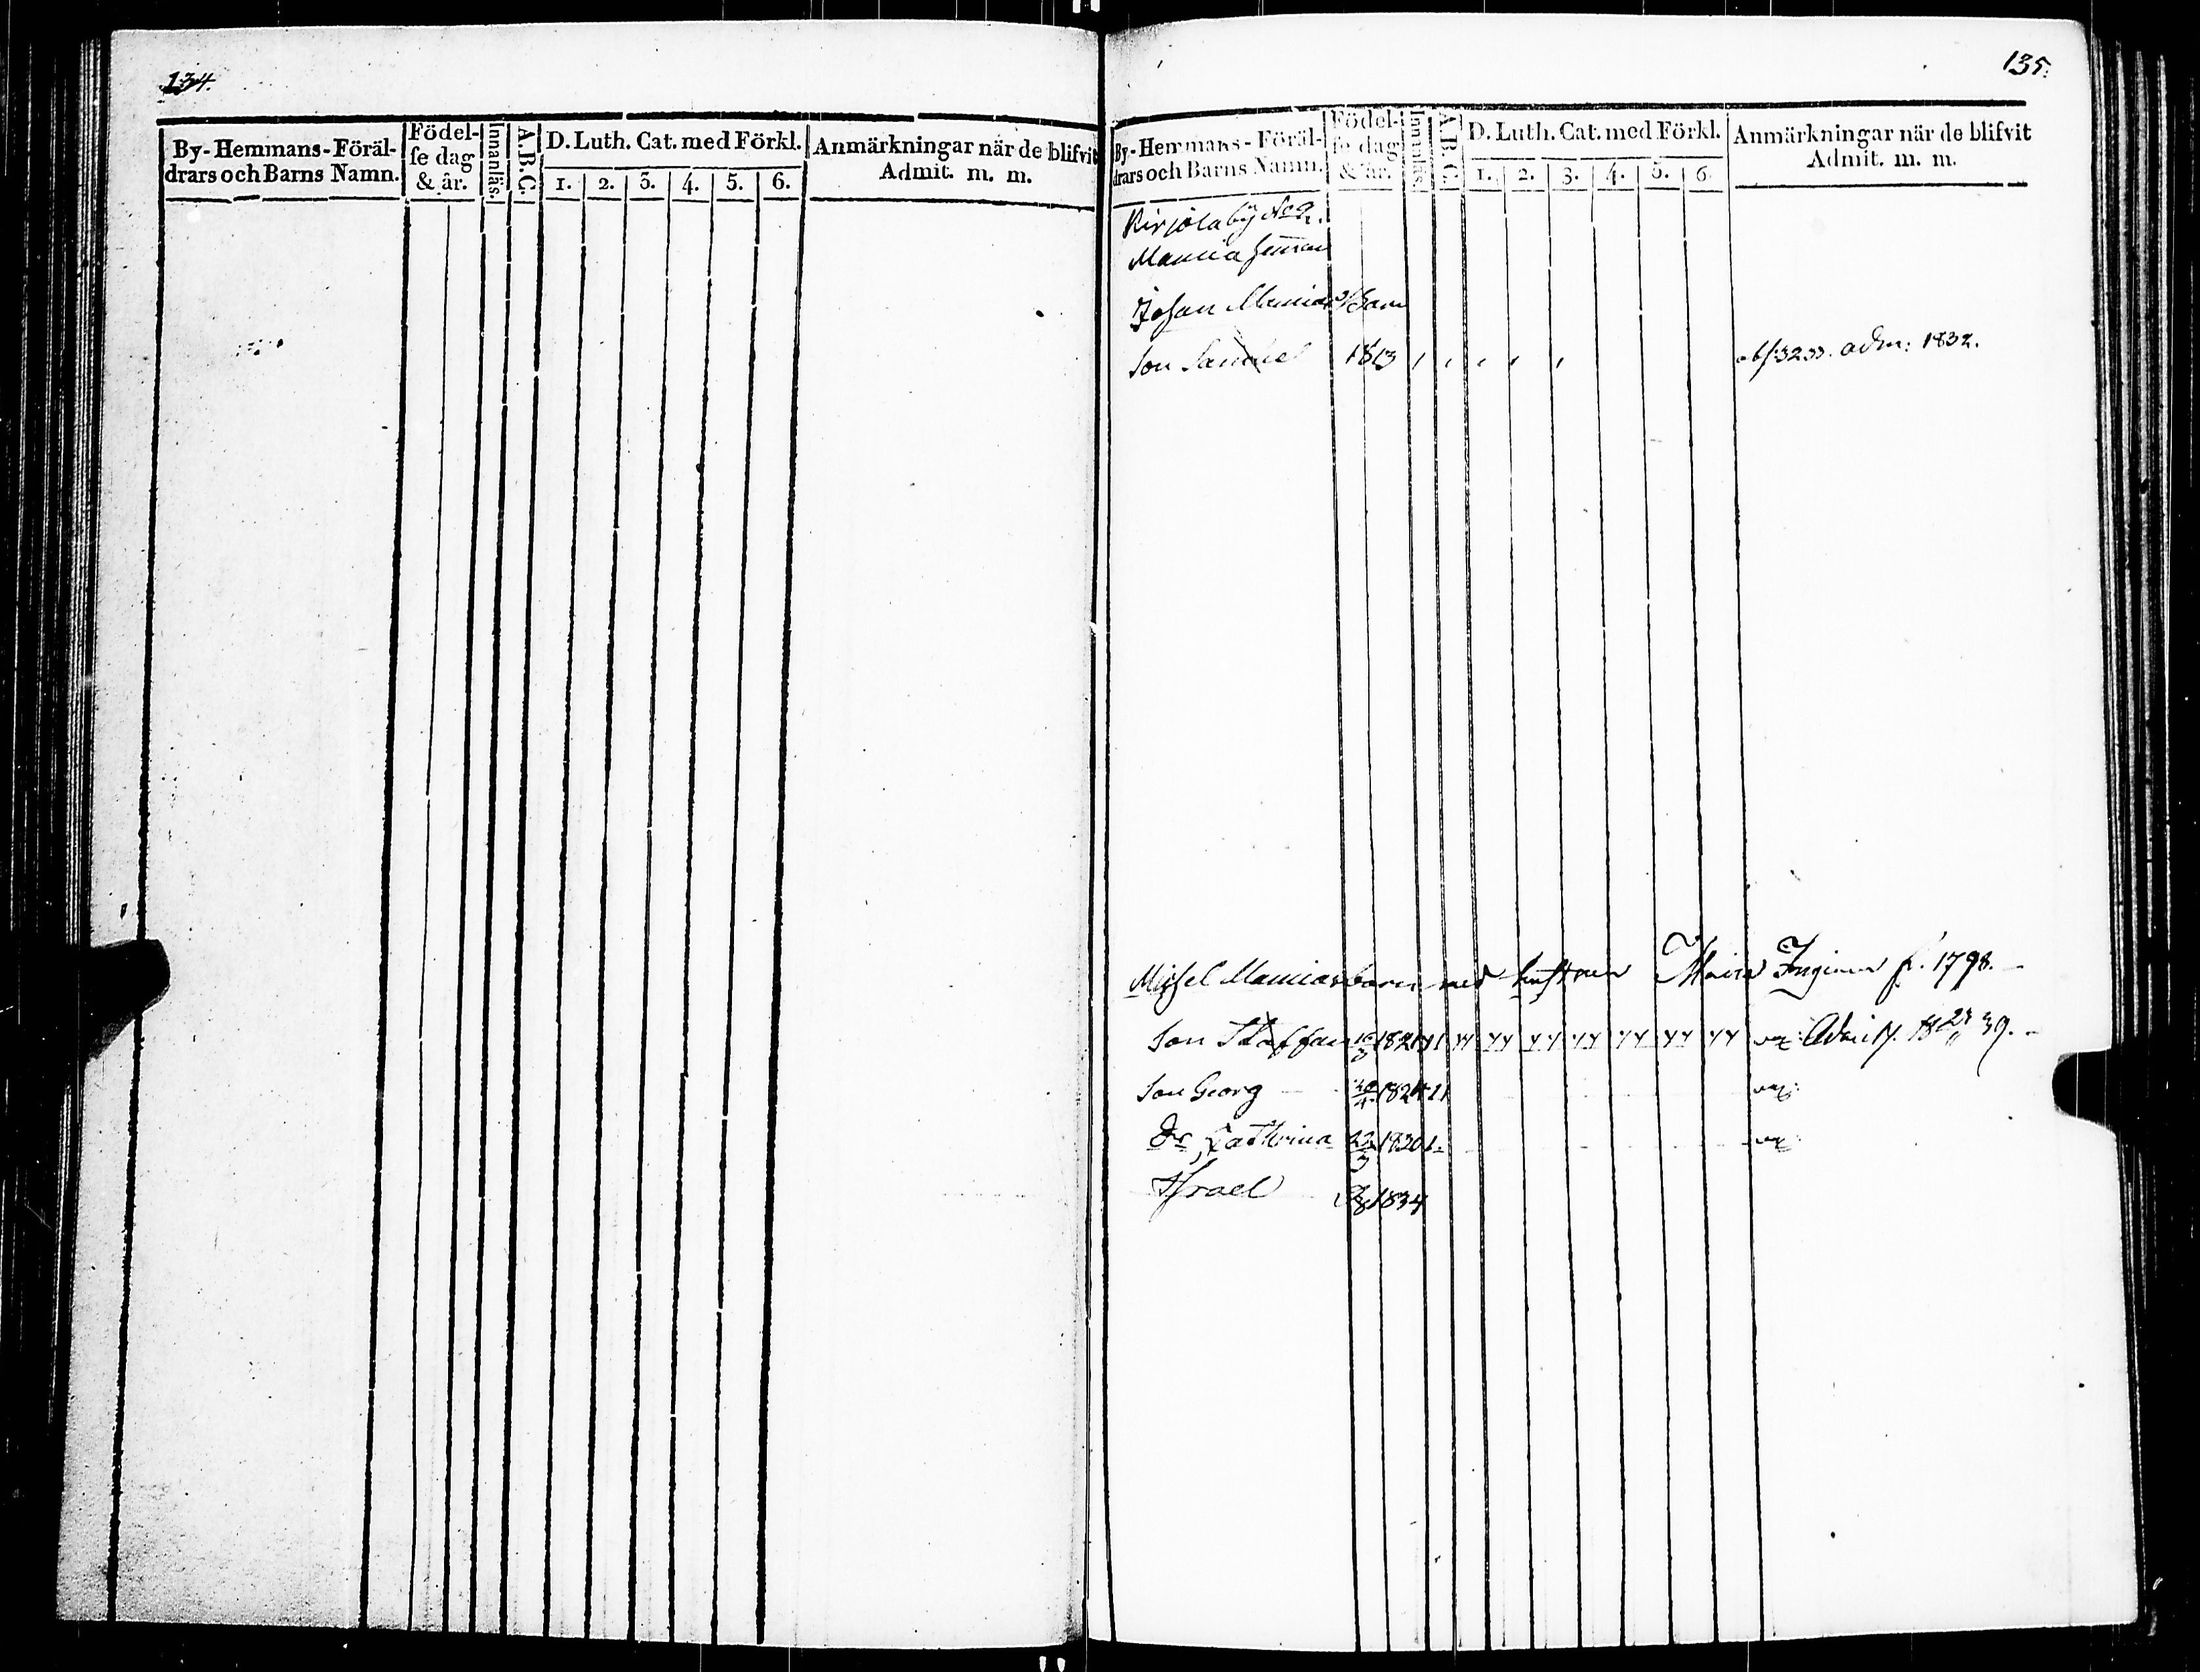 134.
By-Hemmans-Föräl-
drars och Barns Namn.
Födel-
se dag
& år.
Innanläs.
A.B.C.
D. Luth. Cat. med Förkl.
1. 2. 3. 4. 5. 6.
Anmärkningar när de blifvit
Admit. m. m.
135.
By-Hemmans-Föräl-
drars och Barns Namn.
Födel-
se dag
& år.
Innanläs.
A.B.C.
D. Luth. Cat. med Förkl.
1. 2. 3. 4. 5. 6.
Anmärkningar när de blifvit
Admit. m. m.
Kirjola by No 2.
Mamia
Johan Mamias Barn
Son Samuel 1813 abs: 32 33. adm: 1832.
Michel Mamias barn med hustrun Maria f. 1798.
Son Staffan 1821 vac: Admit. 18 39.
Son Georg 1824 vac:
Dr Cathrina 23/3 1830 vac:
Israel 1834